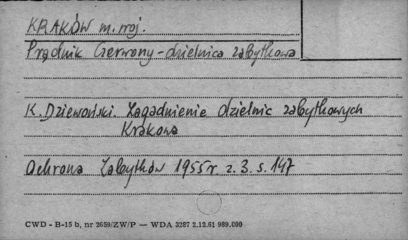 KRAKÓW m. woj.
Prądnik Czerwony - dzielnica zabytkowa
K. Dziewoński. Zagadnienie dzielnic zabytkowych
Krakowa
Ochrona Zabytków 1955 r. z. 3. s. 147
CWD - B-15 b, nr 2659/ZW/P — WDA 3287 2.12.61 989.000